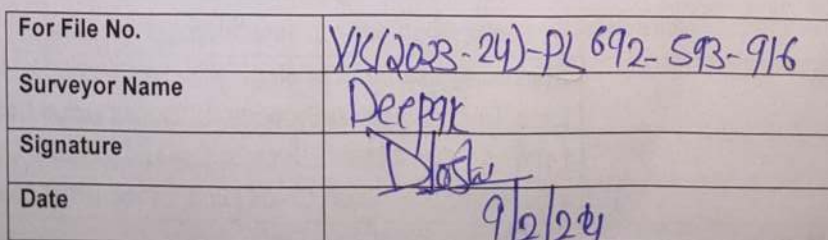 For File No. VK(2023-24)-PL 692-593-916
Surveyor Name Deepak
Signature
Date 9/2/24